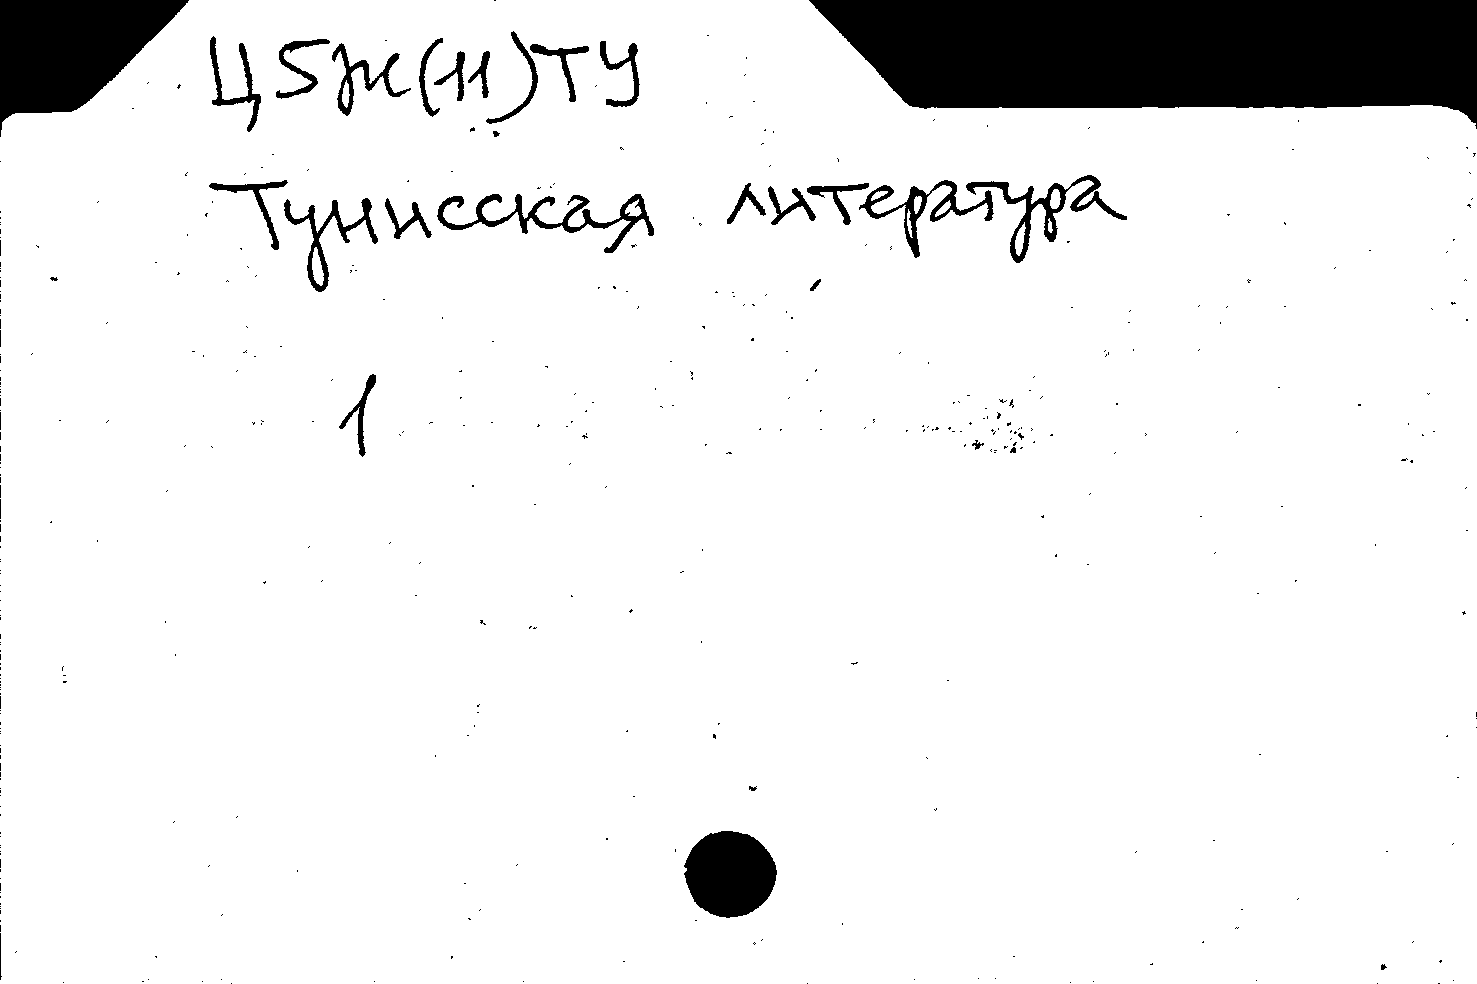 Ц5Ж(11)ТУ
Тунисская литература
1